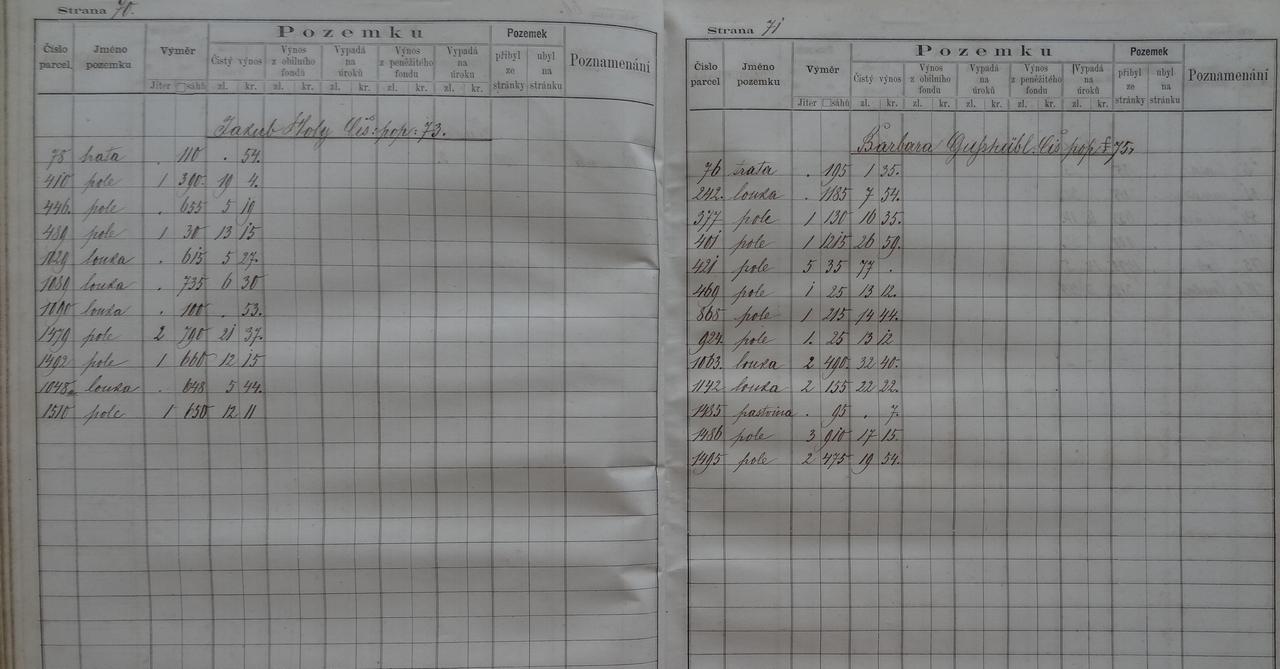 Strana 70.
Pozemku
Číslo parcel. Jméno pozemku Výměr Čistý výnos Výnos z obilního fondu Vypadá na úroků Výnos z peněžitého fondu Vypadá na úroku Pozemek přibyl ze stránky ubyl na stránku Poznamenání
Jiter □sáhů zl. kr. zl. kr. zl. kr. zl. kr. zl. kr.
Jakub Holy Čís: pop: 73.
75 trata . 110 . 54.
410 pole 1 390. 19 4.
446. pole . 655 5 19
489 pole 1 30 13 15
1029 louka . 615 5 27.
1089 louka . 735 6 30
1090 louka . 100 . 53.
1479 pole 2 790 21 37.
1492 pole 1 660 12 15
1048 louka . 648 5 44.
1510 pole 1 650 12 11
Strana 71
Pozemku
Číslo parcel Jméno pozemku Výměr Čistý výnos Výnos z obilního fondu Vypadá na úroků Výnos z peněžitého fondu Vypadá na úroků Pozemek přibyl ze stránky ubyl na stránku Poznamenání
Jiter □sáhů zl. kr. zl. kr. zl. kr. zl. kr. zl. kr.
Barbara Čís pop: 75.
76 trata . 195 1 35.
242. louka . 1185 7 54.
377 pole 1 130 16 35.
401 pole 1 1215 26 59.
421 pole 5 35 77 .
469 pole 1 25 13 12.
868 pole 1 215 14 44.
924 pole 1. 25 13 12
1063. louka 2 490. 32 40.
1142 louka 2 155 22 22.
1485 pastvina . 95 . 7.
1486 pole 3 910 17 15.
1495 pole 2 475 19 54.